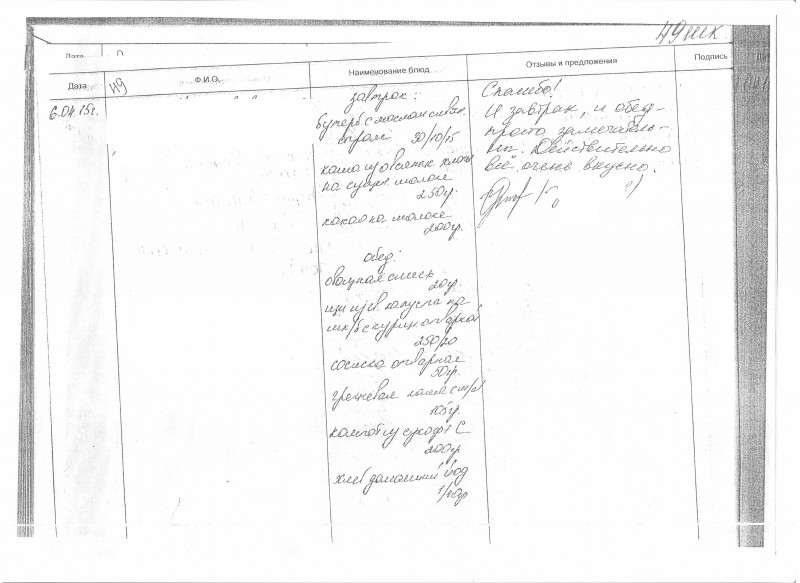 49 шк
Дата
Дата Ф.И.О. Наименование блюд Отзывы и предложения Подпись
6.04.15г. 49
завтрак:
бутерб. с маслом сливоч.
сыром 30/10/15
каша из овсяных хлопьев
на сгущ. молоке
250гр.
какао на молоке
200гр.
обед:
овощная смесь
20гр.
щи из св. капусты на
мк/б с курин. отварной
250/20
сосиска отварная
50гр.
гречневая каша с м/сл
105гр.
компот из сухофр С
200гр.
хлеб домашний йод
1/40гр
Спасибо!
И завтрак, и обед -
просто замечатель-
ны. Действительно
всё очень вкусно.